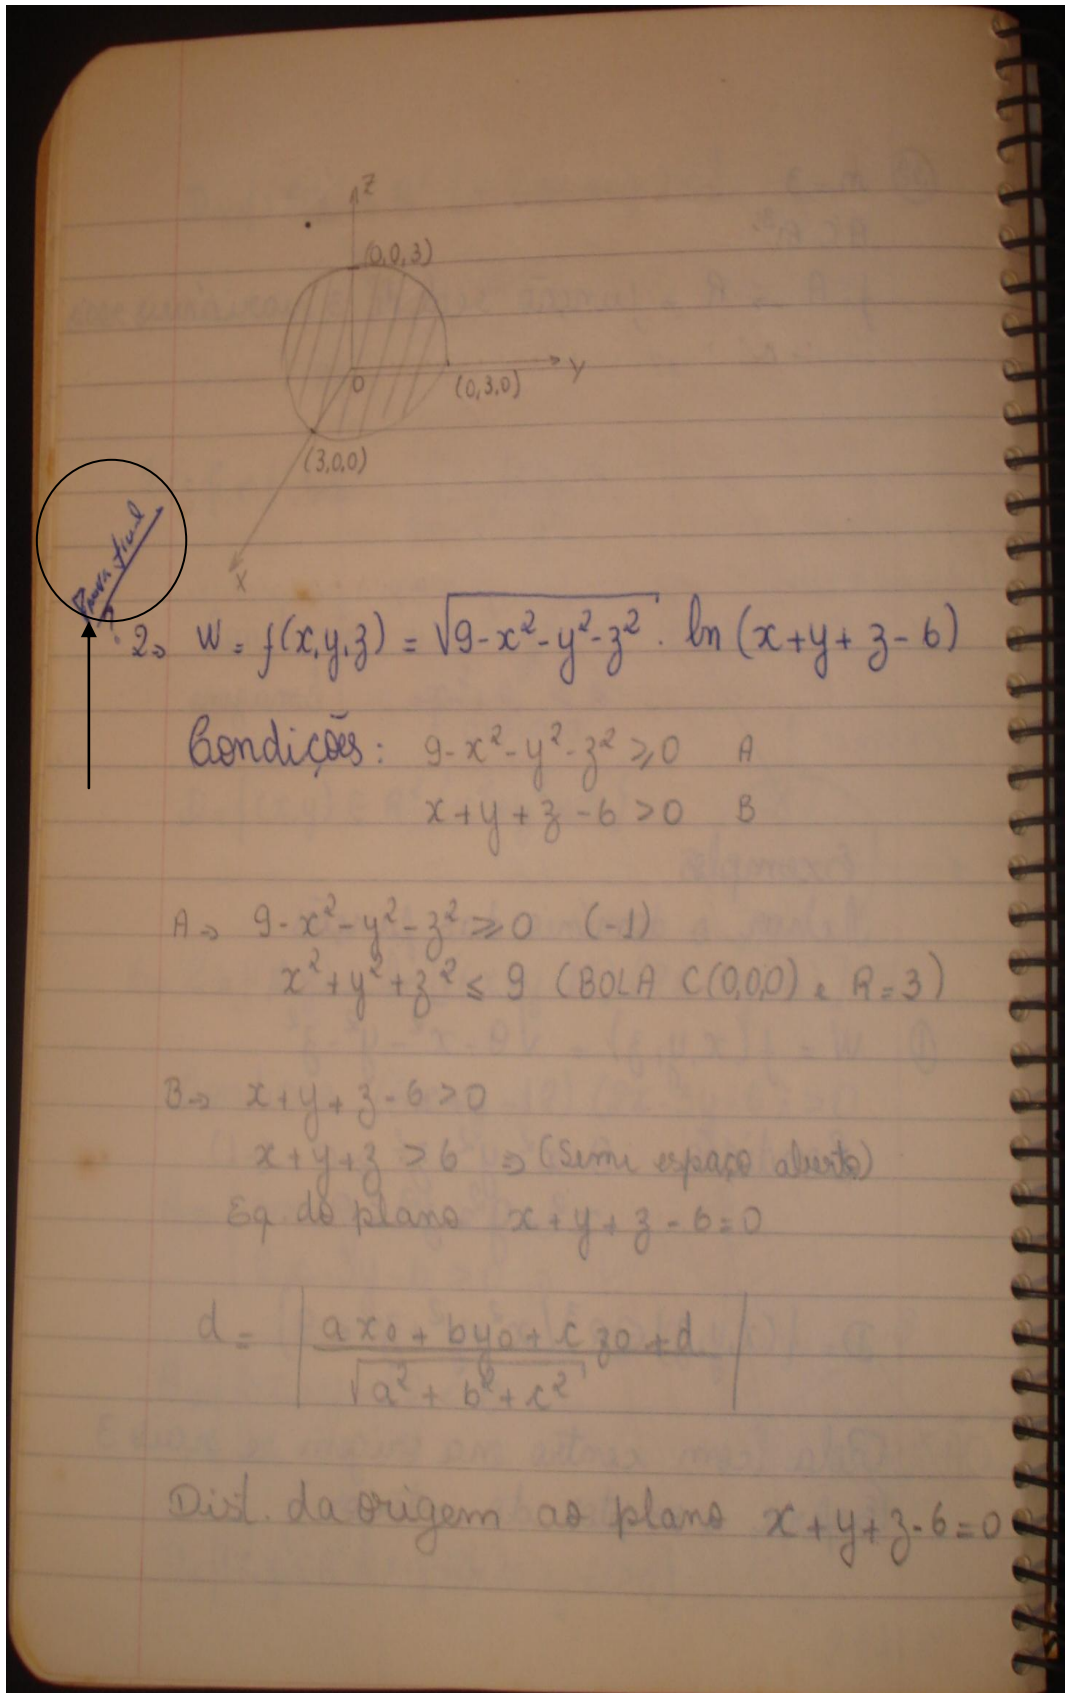 Z
(0,0,3)
0
Y
(0,3,0)
(3,0,0)
X
Prova final
2⇒ W = f(x,y,z) = √(9-x²-y²-z²) · ln (x+y+z-6)
Condições: 9-x²-y²-z² ≥ 0 A
x+y+z-6 > 0 B
A⇒ 9-x²-y²-z² ≥ 0 (-1)
x²+y²+z² ≤ 9 (BOLA C(0,0,0) e R=3)
B⇒ x+y+z-6>0
x+y+z > 6 ⇒ (Semi espaço aberto)
Eq. do plano x+y+z-6=0
d = | (ax0 + by0 + cz0 + d) / √(a²+b²+c²) |
Dist. da origem ao plano x+y+z-6=0